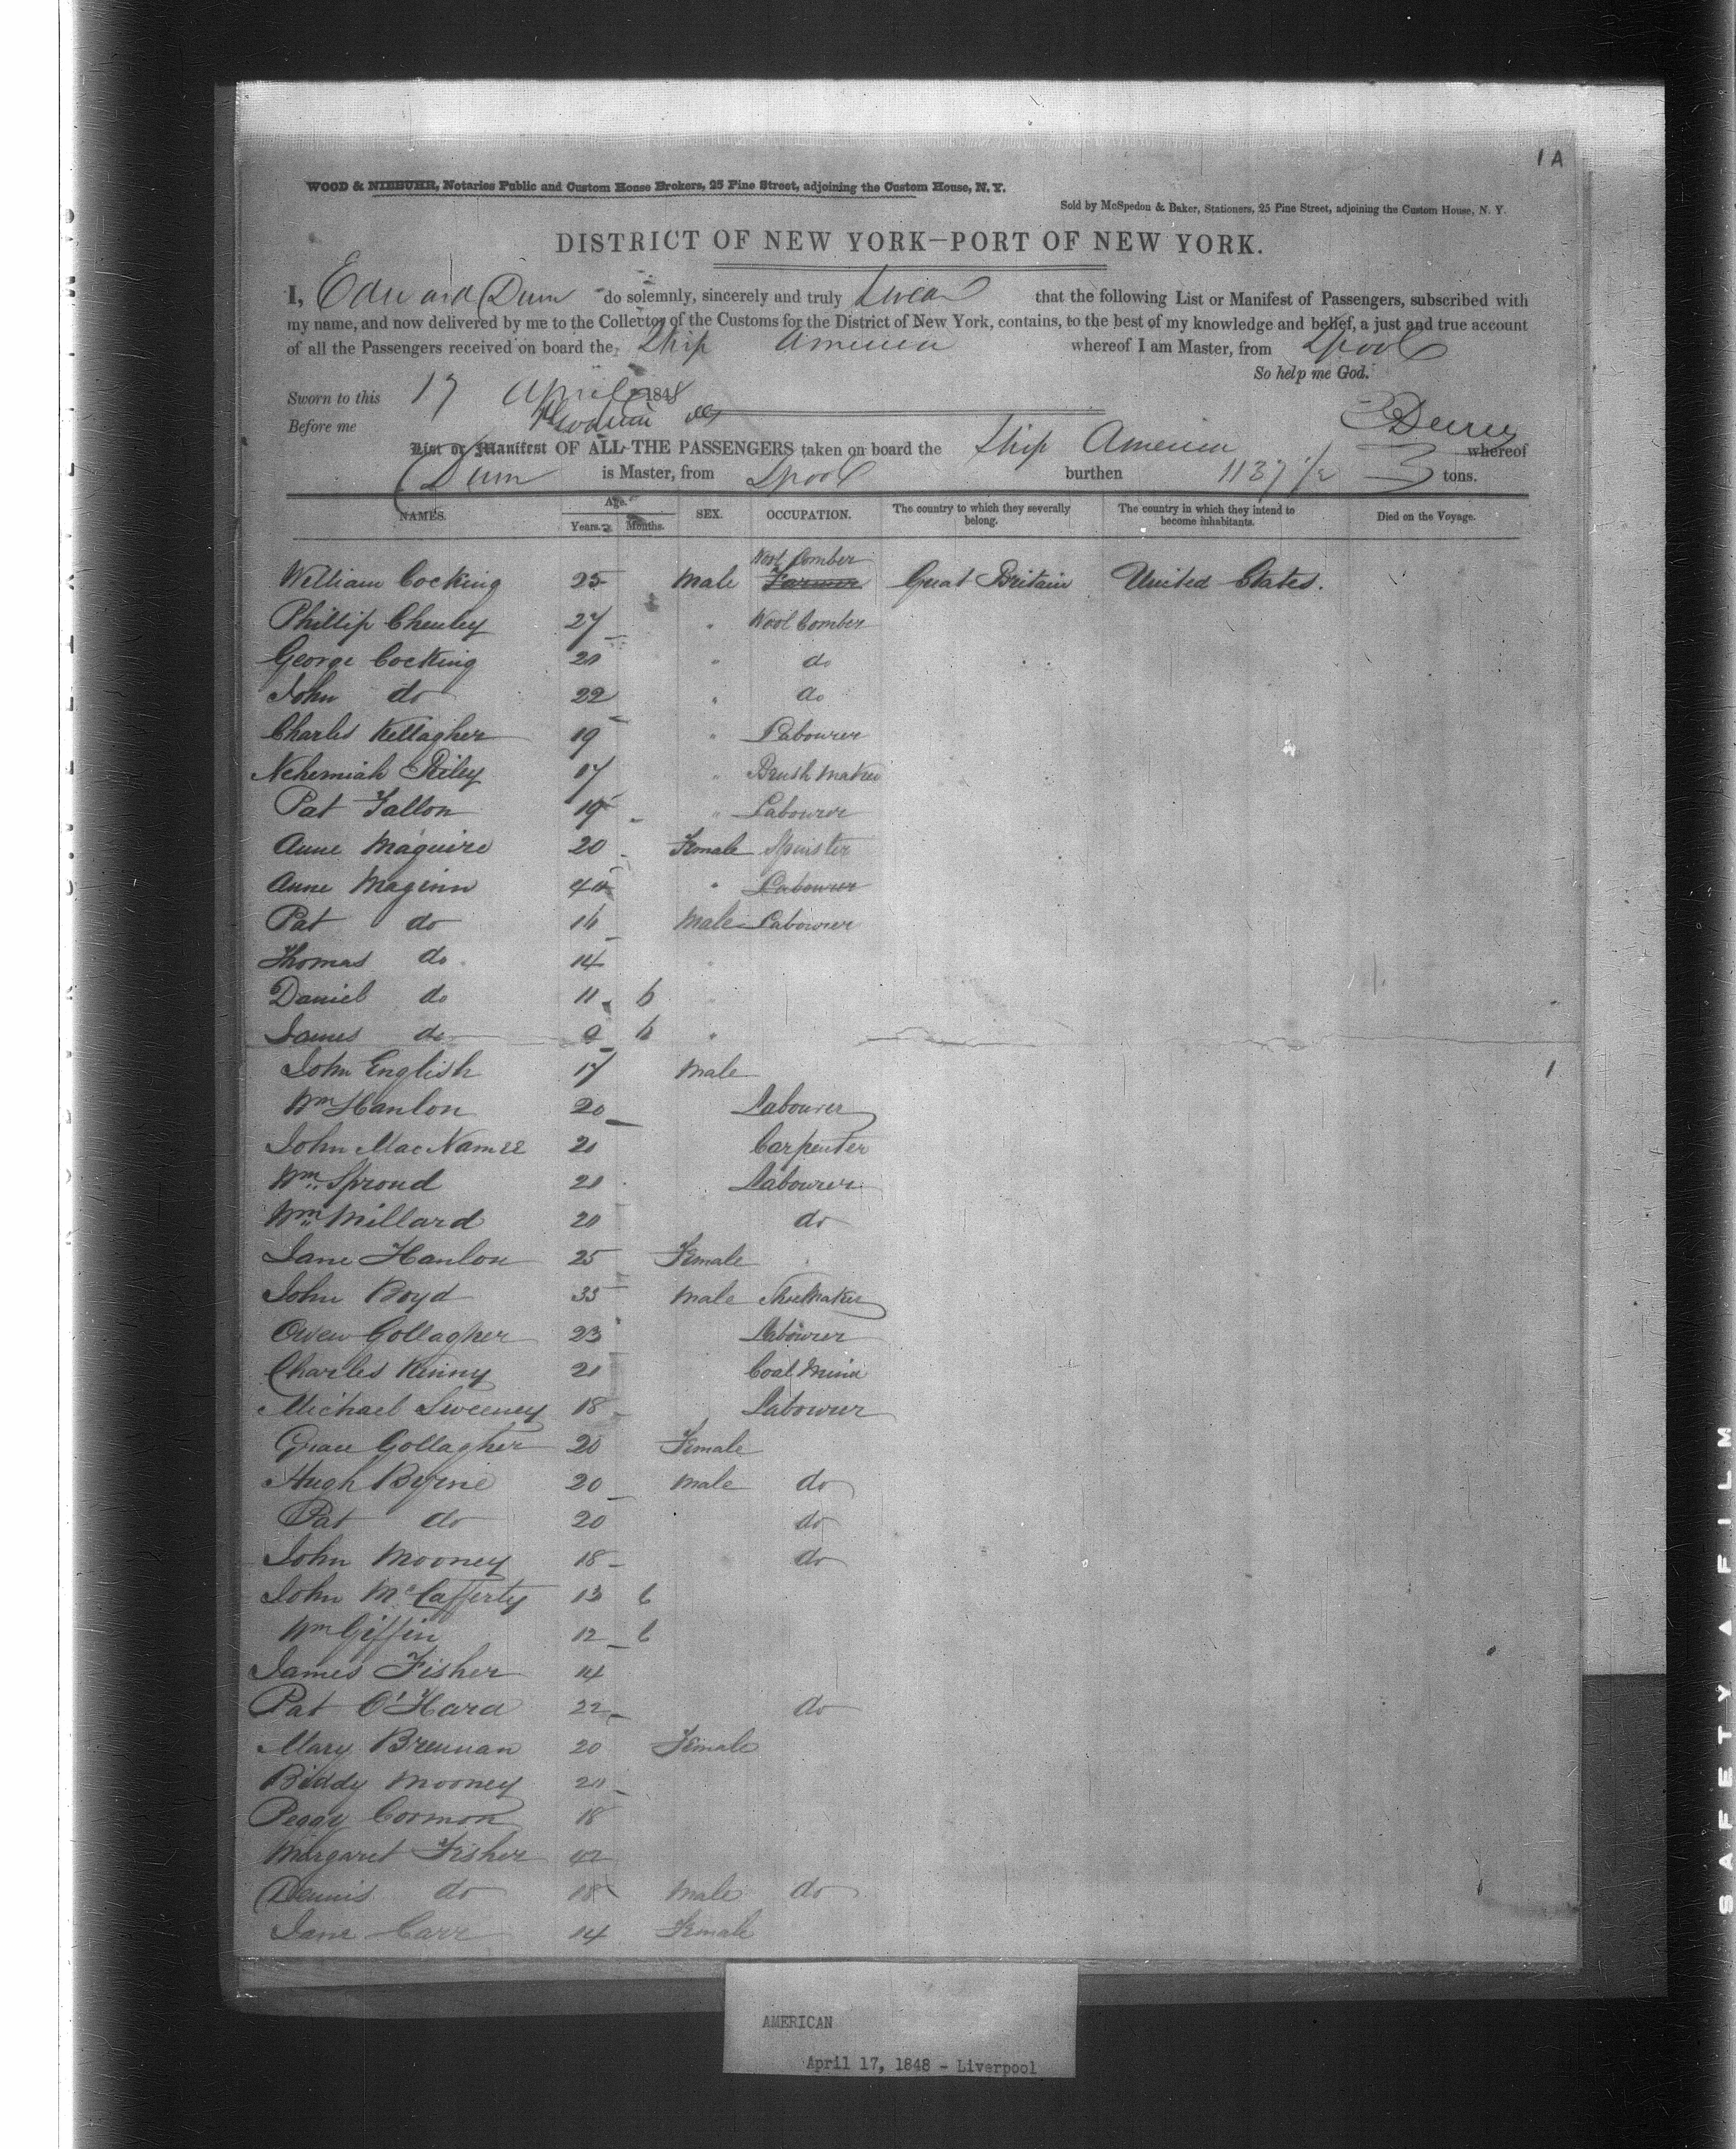 1A
WOOD & NIEBUHR, Notaries Public and Custom House Brokers, 25 Pine Street, adjoining the Custom House, N. Y.
Sold by McSpedon & Baker, Stationers, 25 Pine Street, adjoining the Custom House, N. Y.
DISTRICT OF NEW YORK—PORT OF NEW YORK.
I, Edward Dunn do solemnly, sincerely and truly swear that the following List or Manifest of Passengers, subscribed with
my name, and now delivered by me to the Collector of the Customs for the District of New York, contains, to the best of my knowledge and belief, a just and true account
of all the Passengers received on board the Ship America whereof I am Master, from Lpool
So help me God.
Sworn to this 17 April 1848
Before me
List or Manifest OF ALL THE PASSENGERS taken on board the Ship America whereof
Dunn is Master, from Lpool burthen 1137 1/2 tons.
NAMES. Age. Years. Months. SEX. OCCUPATION. The country to which they severally belong. The country in which they intend to become inhabitants. Died on the Voyage.
Wool Comber
William Cocking 25 Male Farmer Great Britain United States.
Phillip Chenley 27 " Wool Comber
George Cocking 20 " do
John do 22 " do
Charles Kellagher 19 " Labourer
Nehemiah Riley 17 " Brush Maker
Pat Fallon 19 " Labourer
Anne Maguire 20 Female Spinster
Anne Maginn 40 " Labourer
Pat do 16 Male Labourer
Thomas do 14 "
Daniel do 11 6 "
James do 9 6 "
John English 17 Male
Wm Hanlon 20 Labourer
John MacNamee 20 Carpenter
Wm Sproud 20 Labourer
Wm Millard 20 do
Jane Hanlon 25 Female
John Boyd 35 Male Shoemaker
Owen Gollagher 23 Labourer
Charles Kinny 21 Coal Miner
Michael Sweeney 18 Labourer
Grace Gollagher 20 Female
Hugh Byrne 20 Male do
Pat do 20 do
John Mooney 18 do
John McCafferty 13 6
Wm Giffin 12 6
James Fisher 14
Pat O'Hara 22 do
Mary Brennan 20 Female
Biddy Mooney 20
Peggy Cormon 18
Margaret Fisher 42
Dennis do 18 Male do
Jane Carr 14 Female
AMERICAN
April 17, 1848 - Liverpool
SAFETY FILM